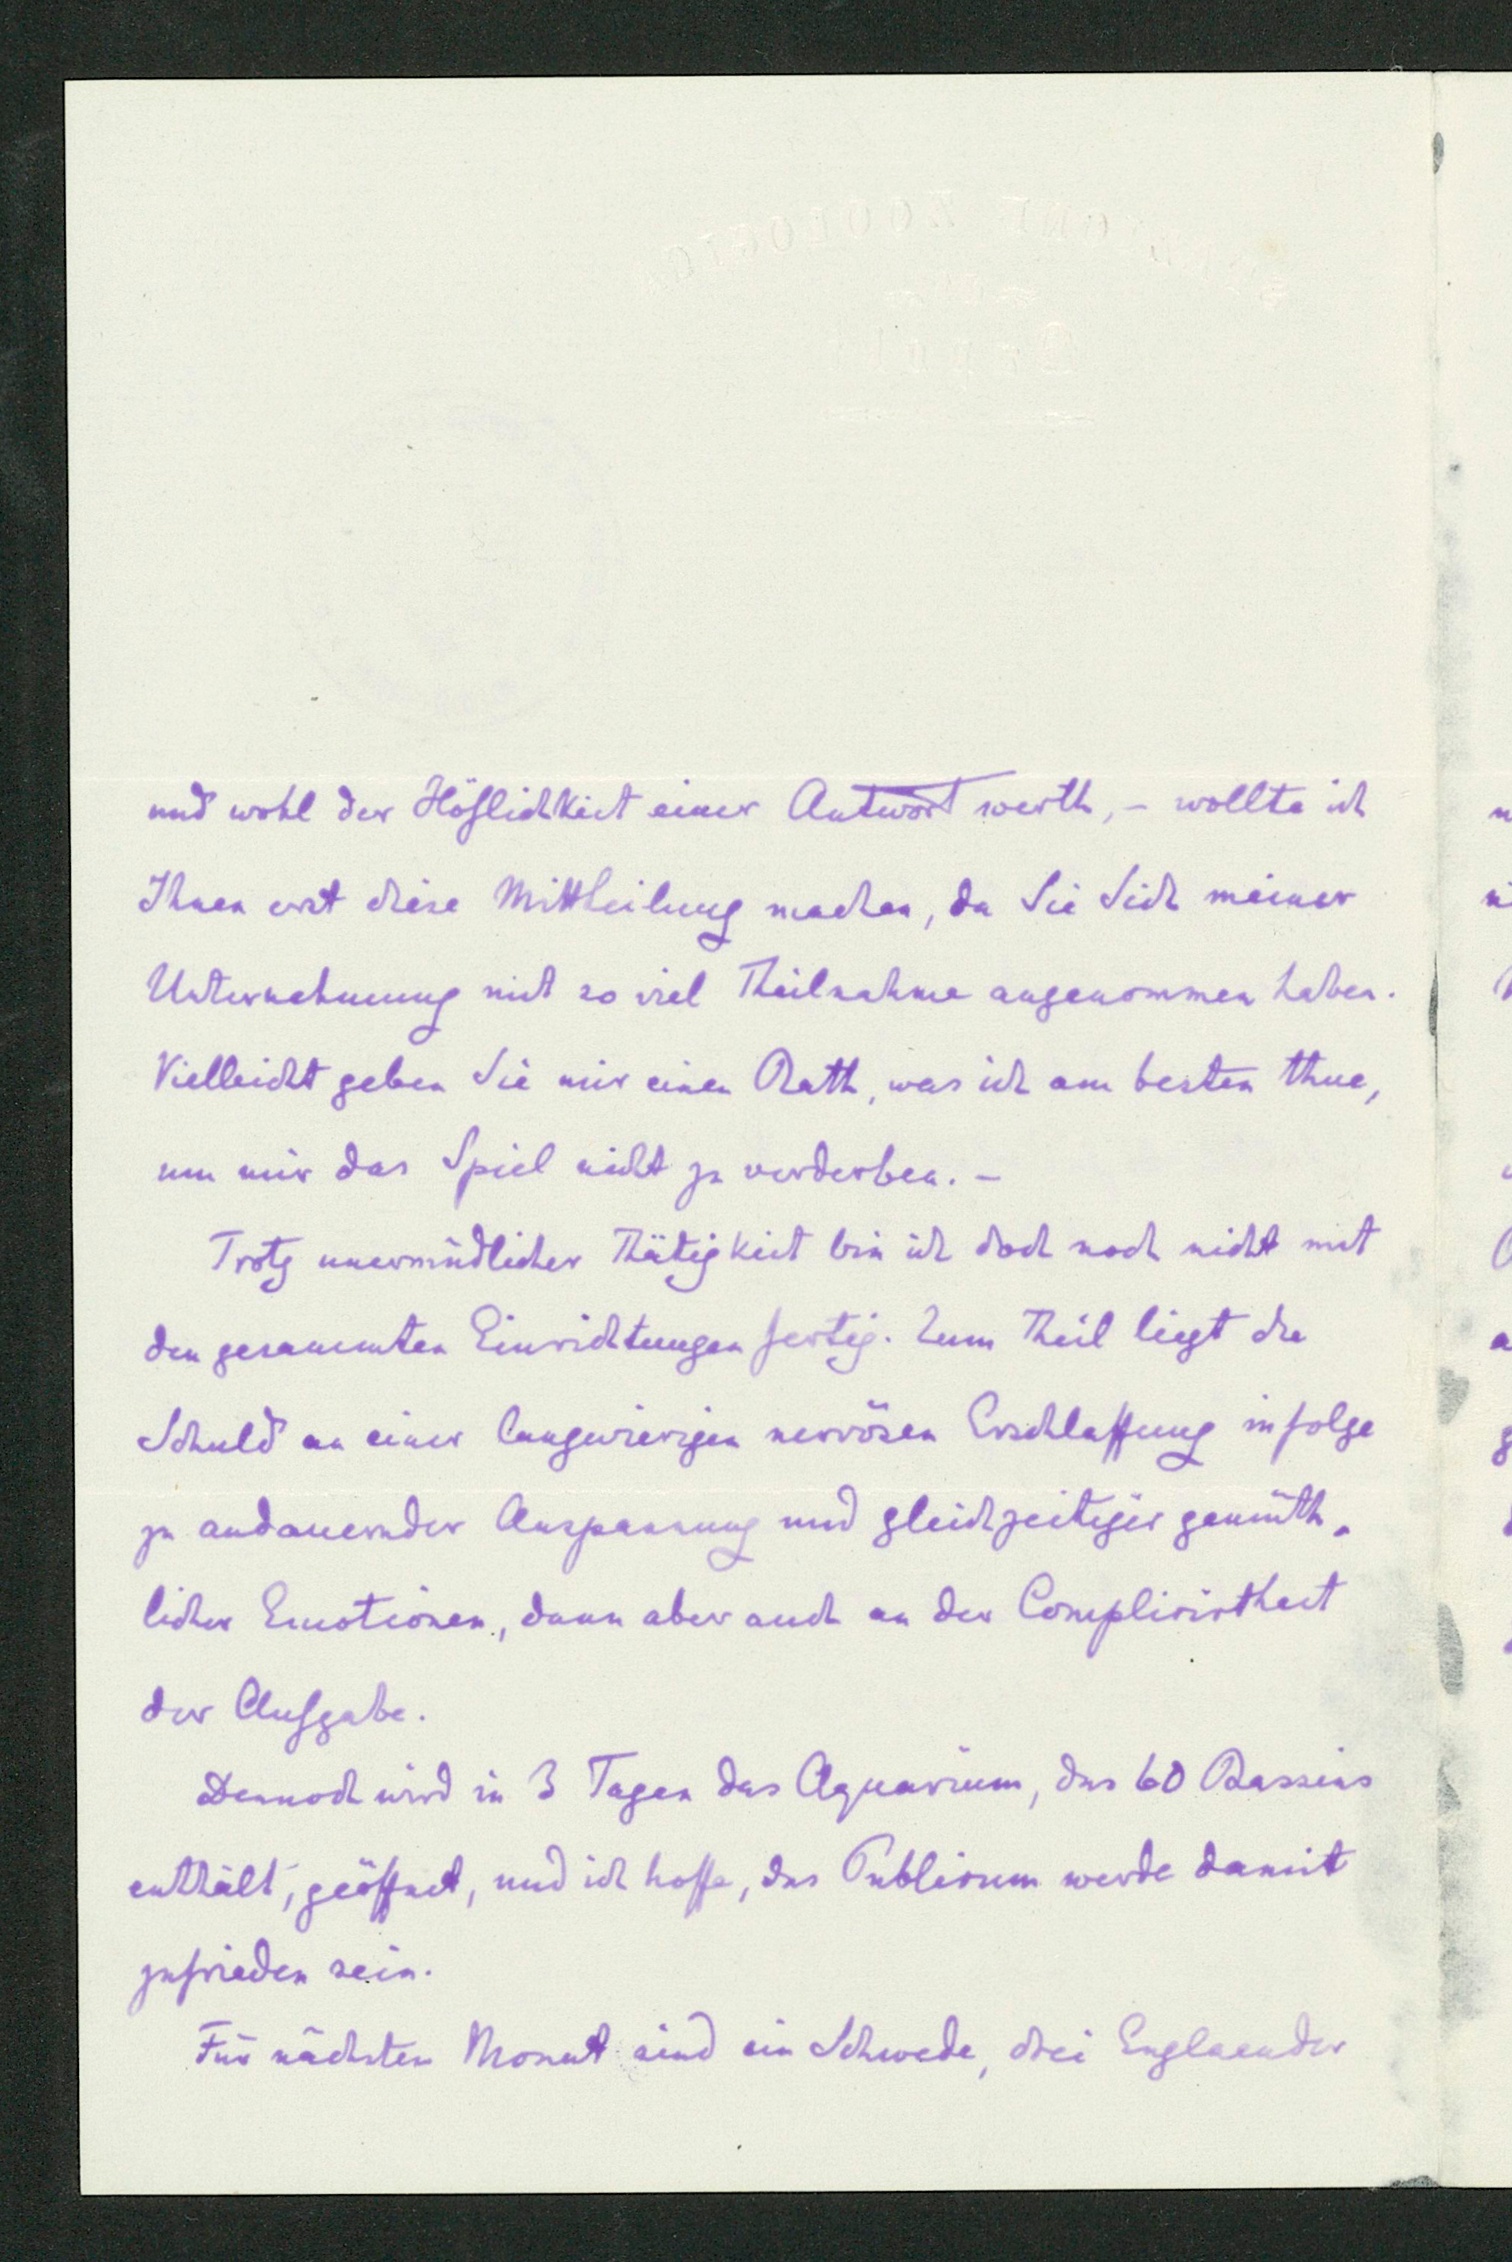 und wohl der Höflichkeit einer Antwort werth, – wollte ich
Ihnen erst diese Mittheilung machen, da Sie Sich meiner
Unternehmung mit so viel Theilnahme angenommen haben.
Vielleicht geben Sie mir einen Rath, was ich am besten thue,
um mir das Spiel nicht zu verderben. –
Trotz unermüdlicher Thätigkeit bin ich doch noch nicht mit
den gesammten Einrichtungen fertig. Zum Theil liegt die
Schuld an einer langwierigen nervösen Erschlaffung in folge
zu andauernder Anspannung und gleichzeitiger gemüth-
licher Emotionen, dann aber auch an der Complicirtheit
der Aufgabe.
Dennoch wird in 3 Tagen das Aquarium, das 60 Bassins
enthält, geöffnet, und ich hoffe, das Publicum werde damit
zufrieden sein.
Für nächsten Monat sind ein Schwede, drei Englaender